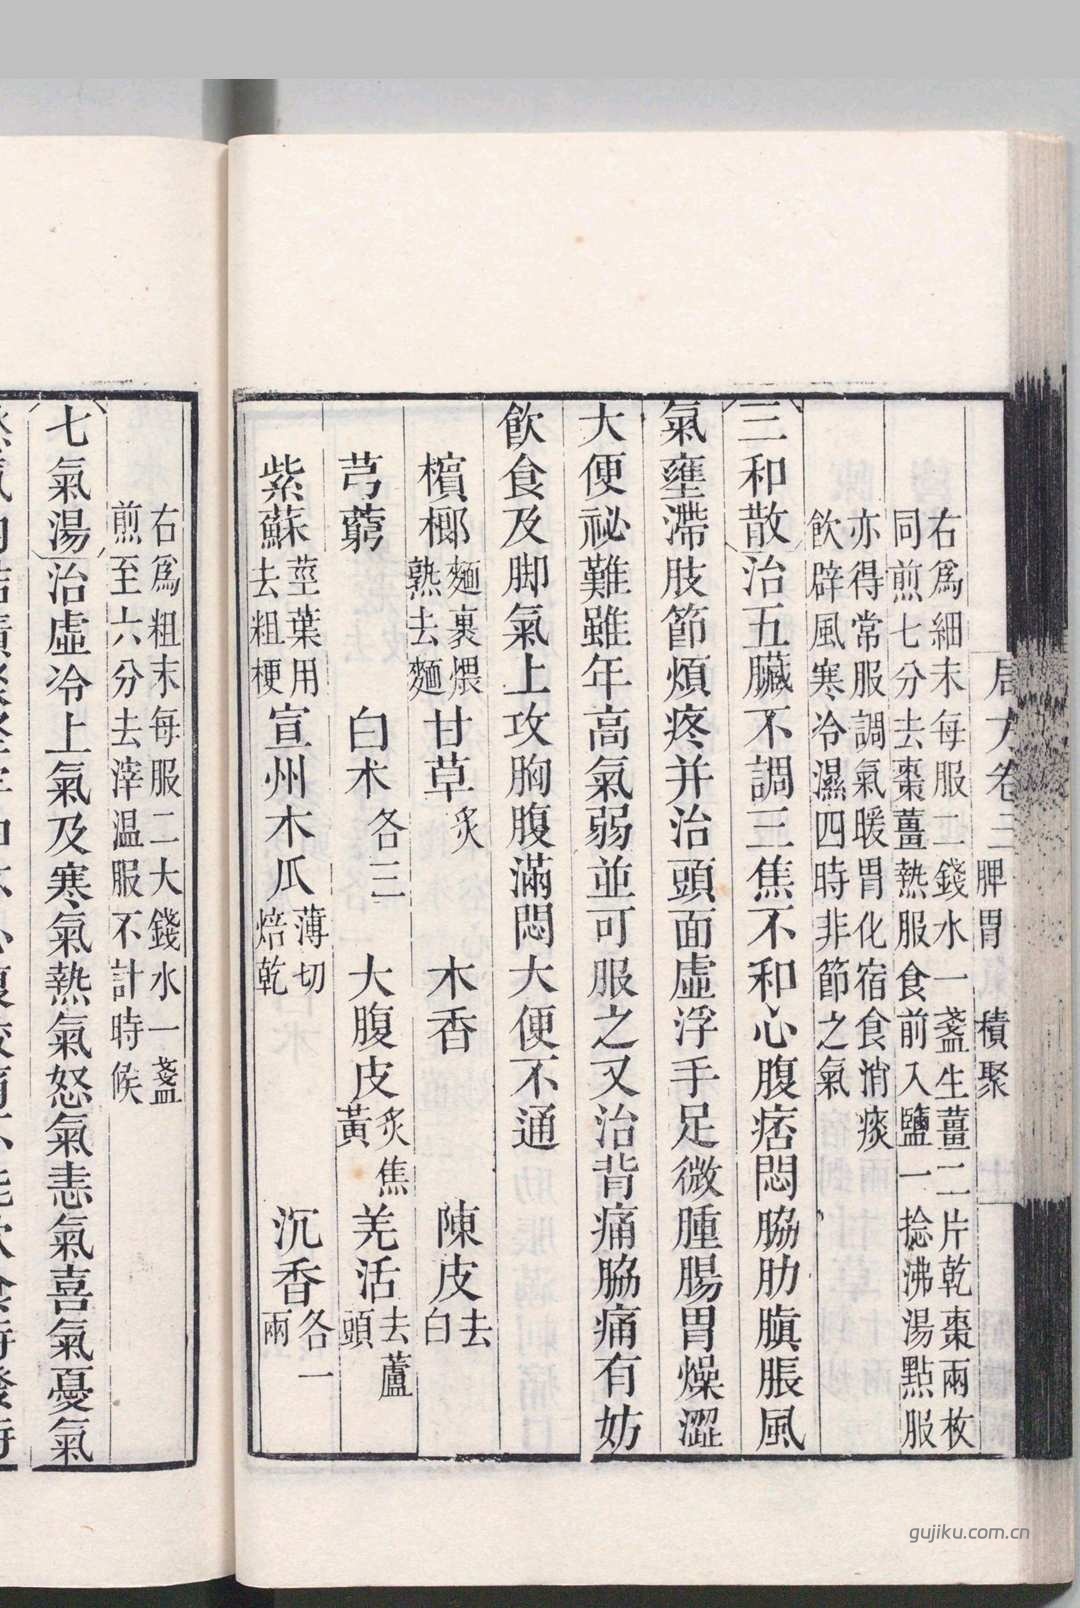 局方卷三 脾胃 積聚
右爲細末每服二錢水一盞生薑二片乾棗兩枚
同煎七分去棗薑熱服食前入鹽一捻沸湯點服
亦得常服調氣暖胃化宿食消痰
飲辟風寒冷濕四時非節之氣
三和散治五臟不調三焦不和心腹痞悶脇肋䐜脹風
氣壅滯肢節煩疼并治頭面虛浮手足微腫腸胃燥澀
大便祕難雖年高氣弱並可服之又治背痛脇痛有妨
飲食及脚氣上攻胸腹滿悶大便不通
檳榔麵裹煨熟去麵 甘草炙 木香 陳皮去白
芎藭 白术各三 大腹皮炙焦黃 羌活去蘆頭
紫蘇莖葉用去粗梗 宣州木瓜薄切焙乾 沉香各一兩
右爲粗末每服二大錢水一盞
煎至六分去滓温服不計時候
七氣湯治虛冷上氣及寒氣熱氣怒氣恚氣喜氣憂氣
gujiku.com.cn